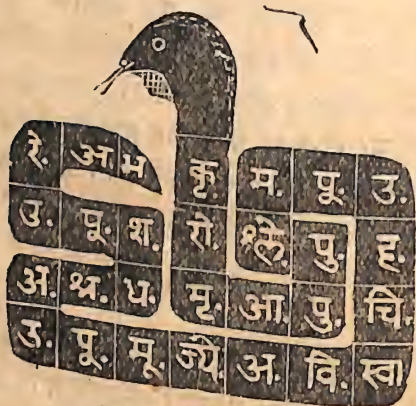 रे. अ भ कृ. म. पू. उ.
उ. पू. श. रो. श्ले. पु. ह.
अ. श्र. ध. मृ. आ. पु. चि.
उ. पू. मू. ज्ये. अ. वि. स्वा